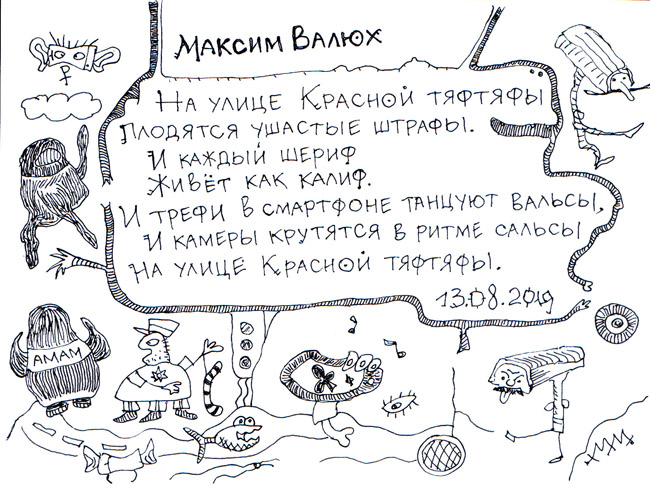 Максим Валюх
На улице Красной тяфтяфы
Плодятся ушастые штрафы.
И каждый шериф
Живёт как калиф.
И трефи в смартфоне танцуют вальсы,
И камеры крутятся в ритме сальсы
На улице Красной тяфтяфы.
13.08.2019
АМАМ